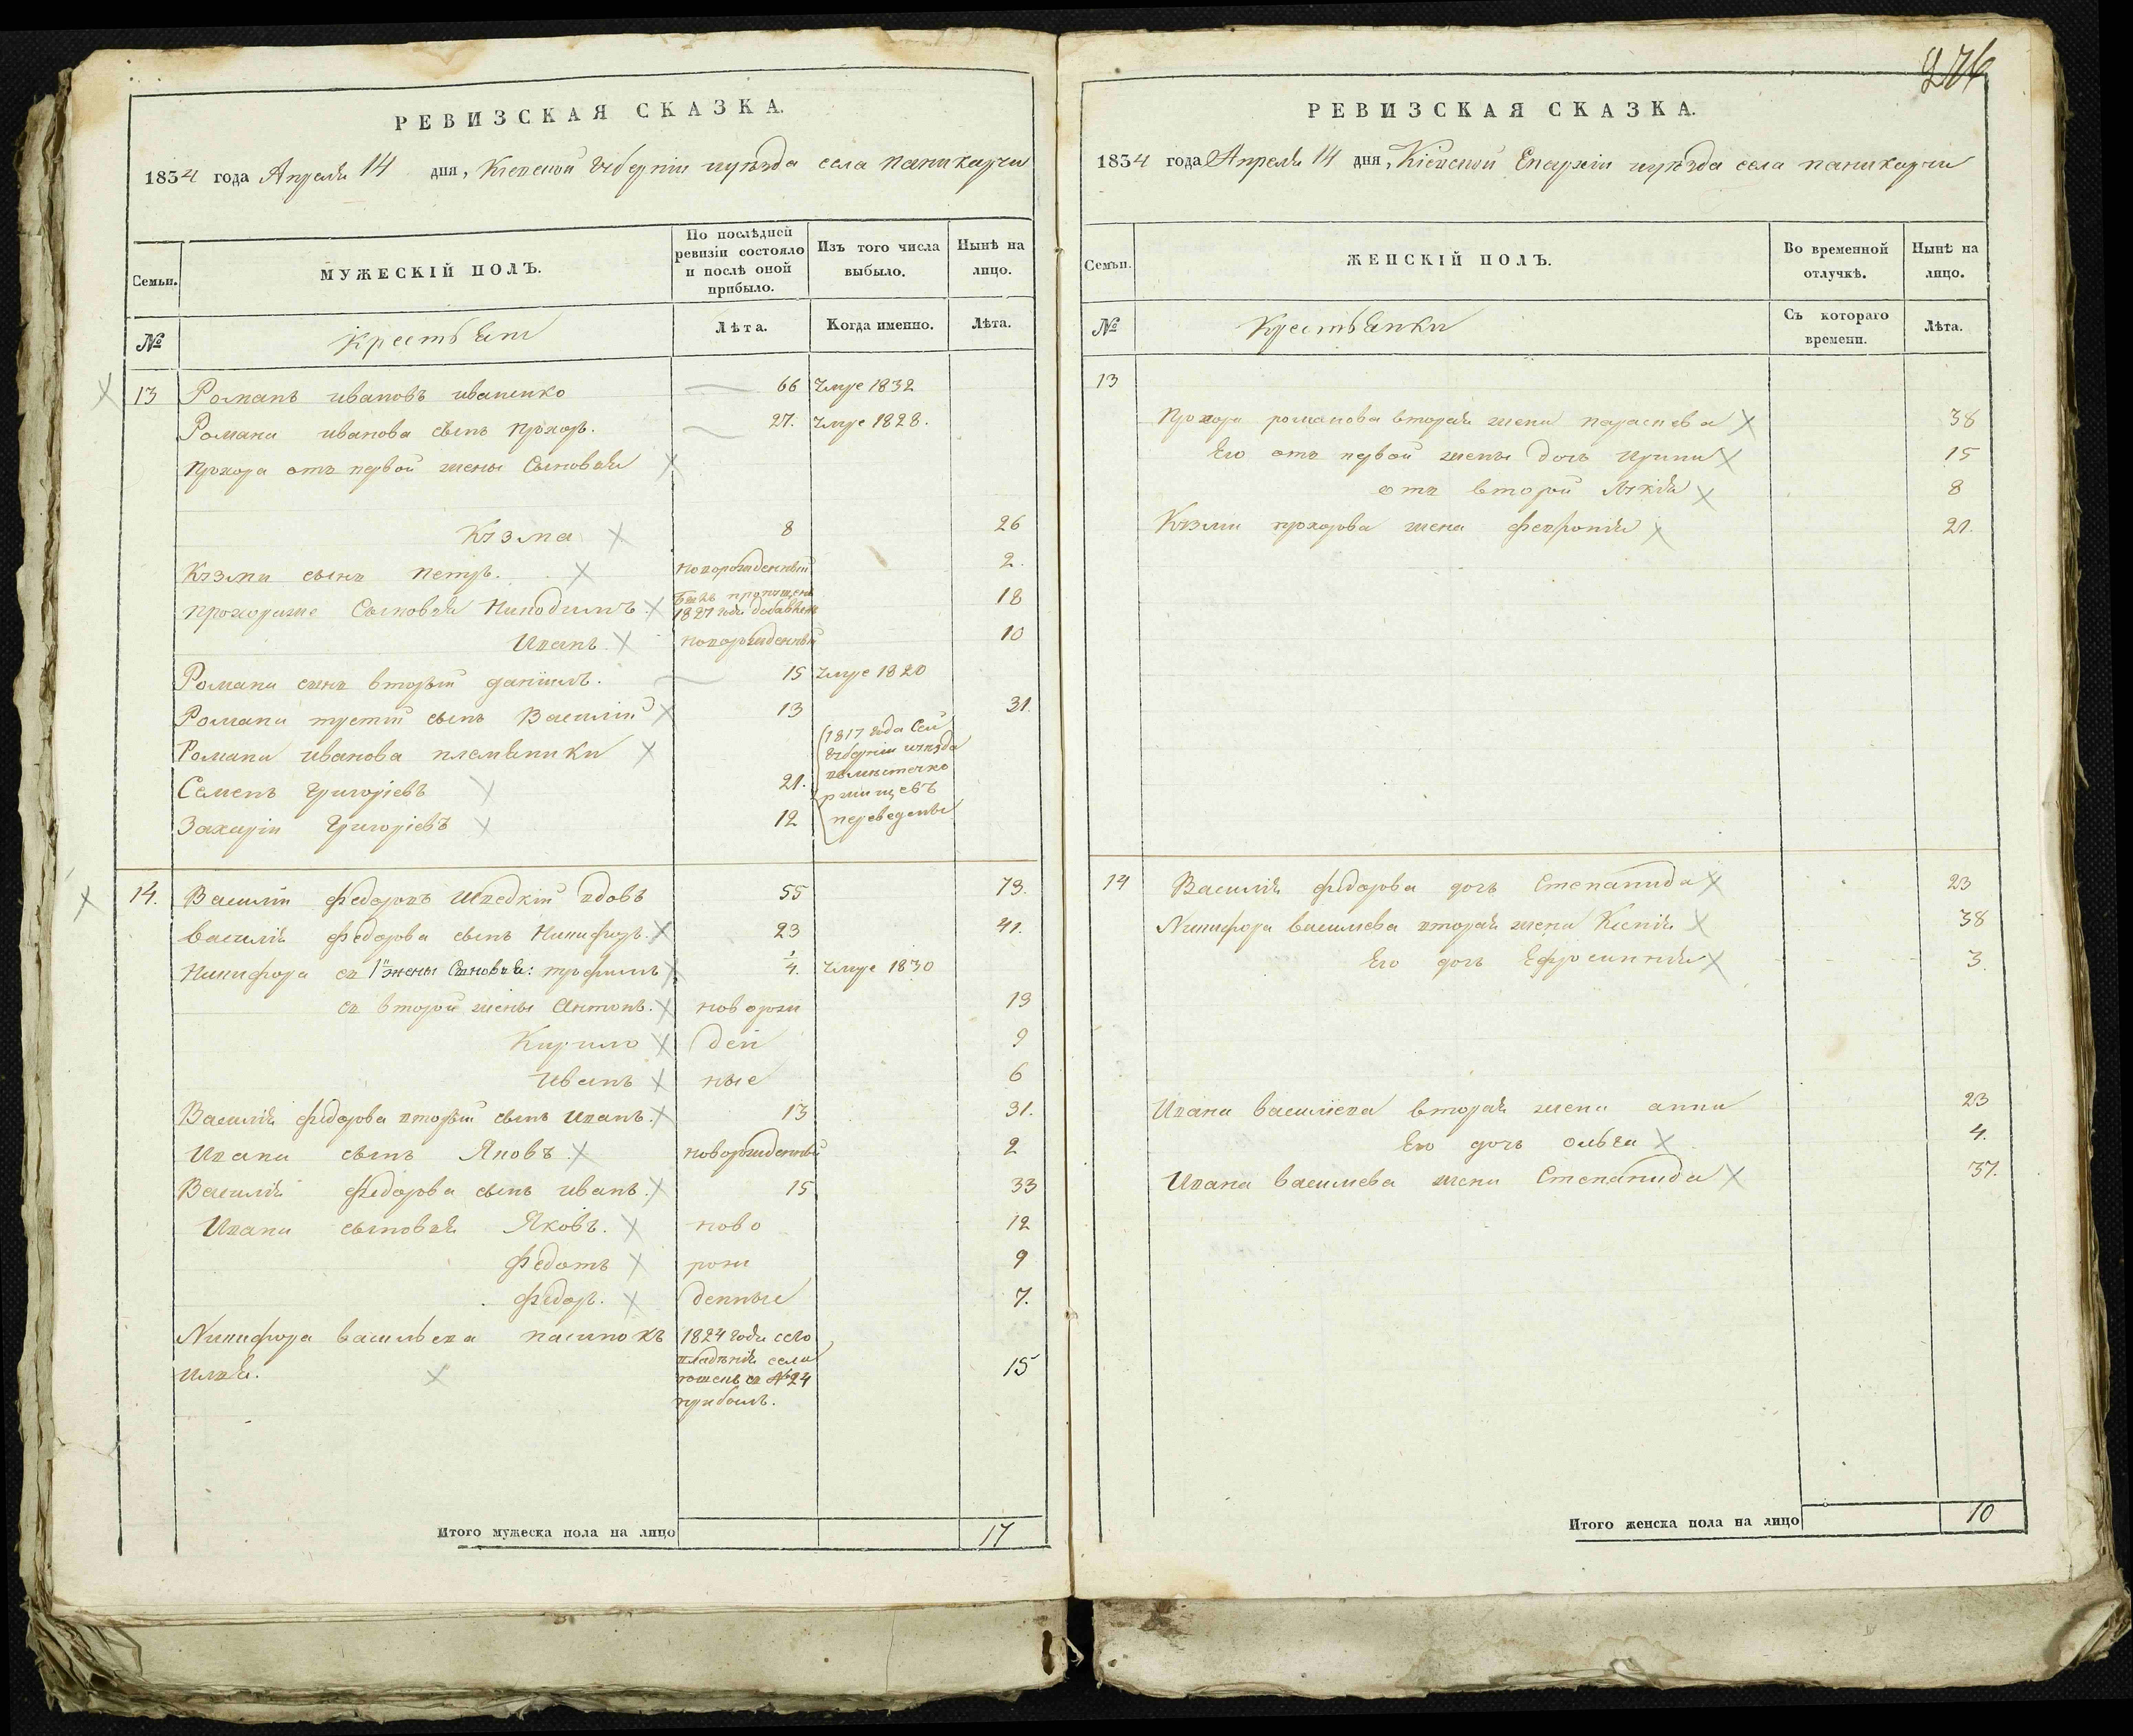 276
РЕВИЗСКАЯ СКАЗКА.
1834 года Апреля 14 дня, Кіевской Губерніи и уѣзда села паникарчи
Семьи.
МУЖЕСКІЙ ПОЛЪ.
По послѣдней ревизіи состояло и послѣ оной прибыло.
Изъ того числа выбыло.
Нынѣ на лицо.
№
Крестьяни
Лѣта.
Когда именно.
Лѣта.
13 Романъ ивановъ иваненко 66 умре 1832
Романа иванова сынъ прохоръ. 27. умре 1828.
прохора отъ первой жены Сыновья
Кузма 8 26
Кузми сынъ петръ. новорожденный 2.
прохориже Сыновья Никодимъ Былъ пропущенъ 1827 года добавленъ 18
Иванъ новорожденный 10
Романа сынъ вторый данiилъ. 15 умре 1820
Романа третій сынъ Василій 13 31.
Романа иванова племѣники
Семенъ Григоріевъ 21.
Захарiи Григоріевъ 12
(1817 года Сей
Губерніи и уѣзда
вомѣстечко
ржищевъ
переведены
14. Василій федоровъ Шведкій вдовъ 55 73.
Василія федорова сынъ Никифоръ. 23 41.
Никифора съ 1й жены Сыновья: трофимъ 4. умре 1830
съ второй жены Антонъ. новорож 19
Кирило ден 9
иванъ ные 6
Василія федорова вторый сынъ иванъ. 13 31.
Ивана сынъ Яковъ новорожденный 2
Василія федорова сынъ иванъ. 15 33
Ивана сыновья Яковъ. ново 12
федотъ рож 9
федоръ. денные 7.
Никифора васильева пасинокъ 1824 года сего
илья. владѣнія села 15
съ №24
прибылъ.
Итого мужеска пола на лицо 17
РЕВИЗСКАЯ СКАЗКА.
1834 года Апреля 14 дня, Кіевской Епархіи и уѣзда села паникарчи
Семьи.
ЖЕНСКІЙ ПОЛЪ.
Во временной отлучкѣ.
Нынѣ на лицо.
№
Крестьянки
Съ котораго времени.
Лѣта.
13
прохора романова вторая жена параскева 38
Его отъ первой жены дочь Ирина 15
отъ второй Лукія 8
Кузми прохорова жена февронія 21.
14 Василія федорова дочь Степанида 23
Никифора васильева вторая жена Ксенія 38
Его дочь Ефросинія 3.
Ивана васильева вторая жена анна 23
Его дочь ольга 4.
Ивана васильева жена Степанида 37.
Итого женска пола на лицо 10